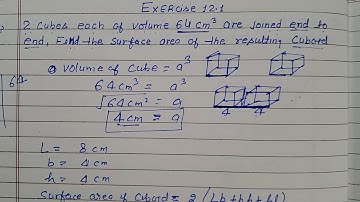 EXERCISE 12.1
2 cubes each of volume 64 cm³ are joined end to
end, Find the surface area of the resulting Cuboid
volume of cube = a³
64
64 cm³ = a³
√64 cm² = a
4 cm = a
4 4
L = 8 cm
b = 4 cm
h = 4 cm
Surface area of Cuboid = 2 (Lb + bh + hl)